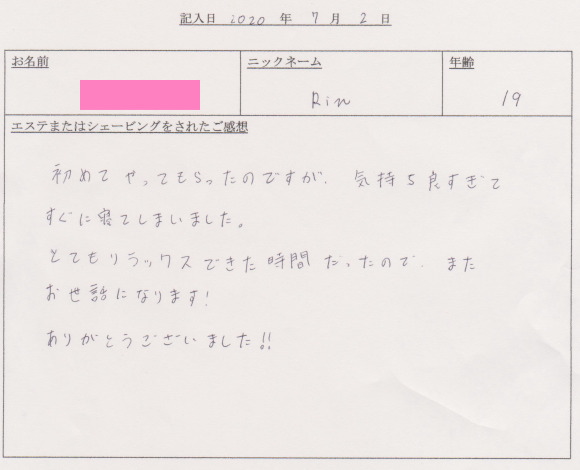 記入日 2020 年 7 月 2 日
お名前 ニックネーム 年齢
Rin 19
エステまたはシェービングをされたご感想
初めてやってもらったのですが、気持ち良すぎて
すぐに寝てしまいました。
とてもリラックスできた時間だったので、また
お世話になります!
ありがとうございました!!